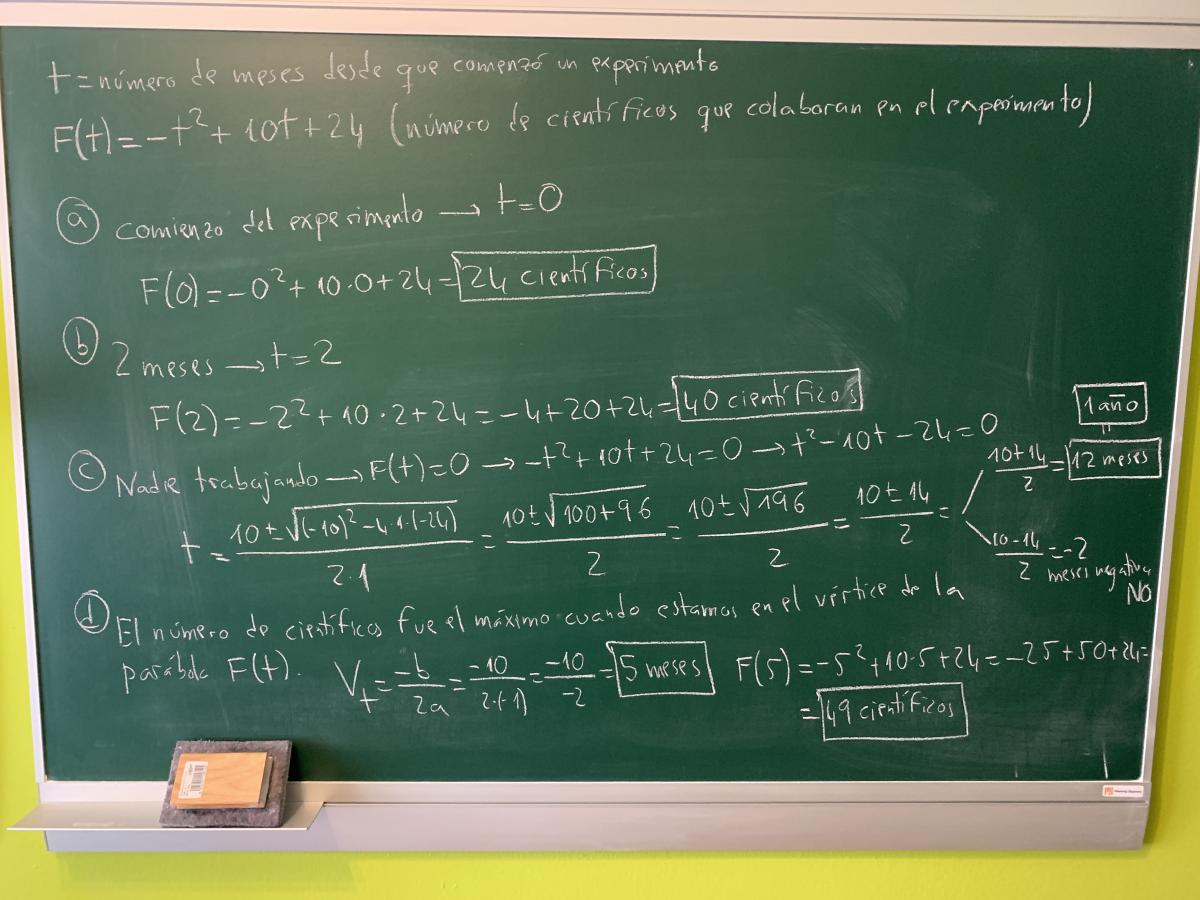 t = número de meses desde que comenzó un experimento
F(t) = -t² + 10t + 24 (número de científicos que colaboran en el experimento)
a comienzo del experimento → t = 0
F(0) = -0² + 10·0 + 24 = 24 científicos
b 2 meses → t = 2
F(2) = -2² + 10·2 + 24 = -4 + 20 + 24 = 40 científicos
c Nadie trabajando → F(t) = 0 → -t² + 10t + 24 = 0 → t² - 10t - 24 = 0
t = (10 ± √((-10)² - 4·1·(-24))) / (2·1) = (10 ± √(100 + 96)) / 2 = (10 ± √196) / 2 = (10 ± 14) / 2 =
(10 + 14) / 2 = 12 meses = 1 año
(10 - 14) / 2 = -2
meses negativa
NO
d El número de científicos fue el máximo cuando estamos en el vértice de la
parábola F(t). Vt = -b / 2a = -10 / 2·(-1) = -10 / -2 = 5 meses F(5) = -5² + 10·5 + 24 = -25 + 50 + 24 =
= 49 científicos